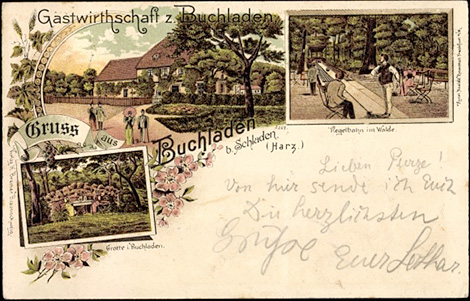 Gastwirthschaft z. Buchladen
Gruss aus
Buchladen
b. Schladen.
(Harz.)
Kegelbahn im Walde
Grotte i. Buchladen.
Lieben
Von hier sende ich Euch
Die herzlichsten
Grüße Euer Lothar.